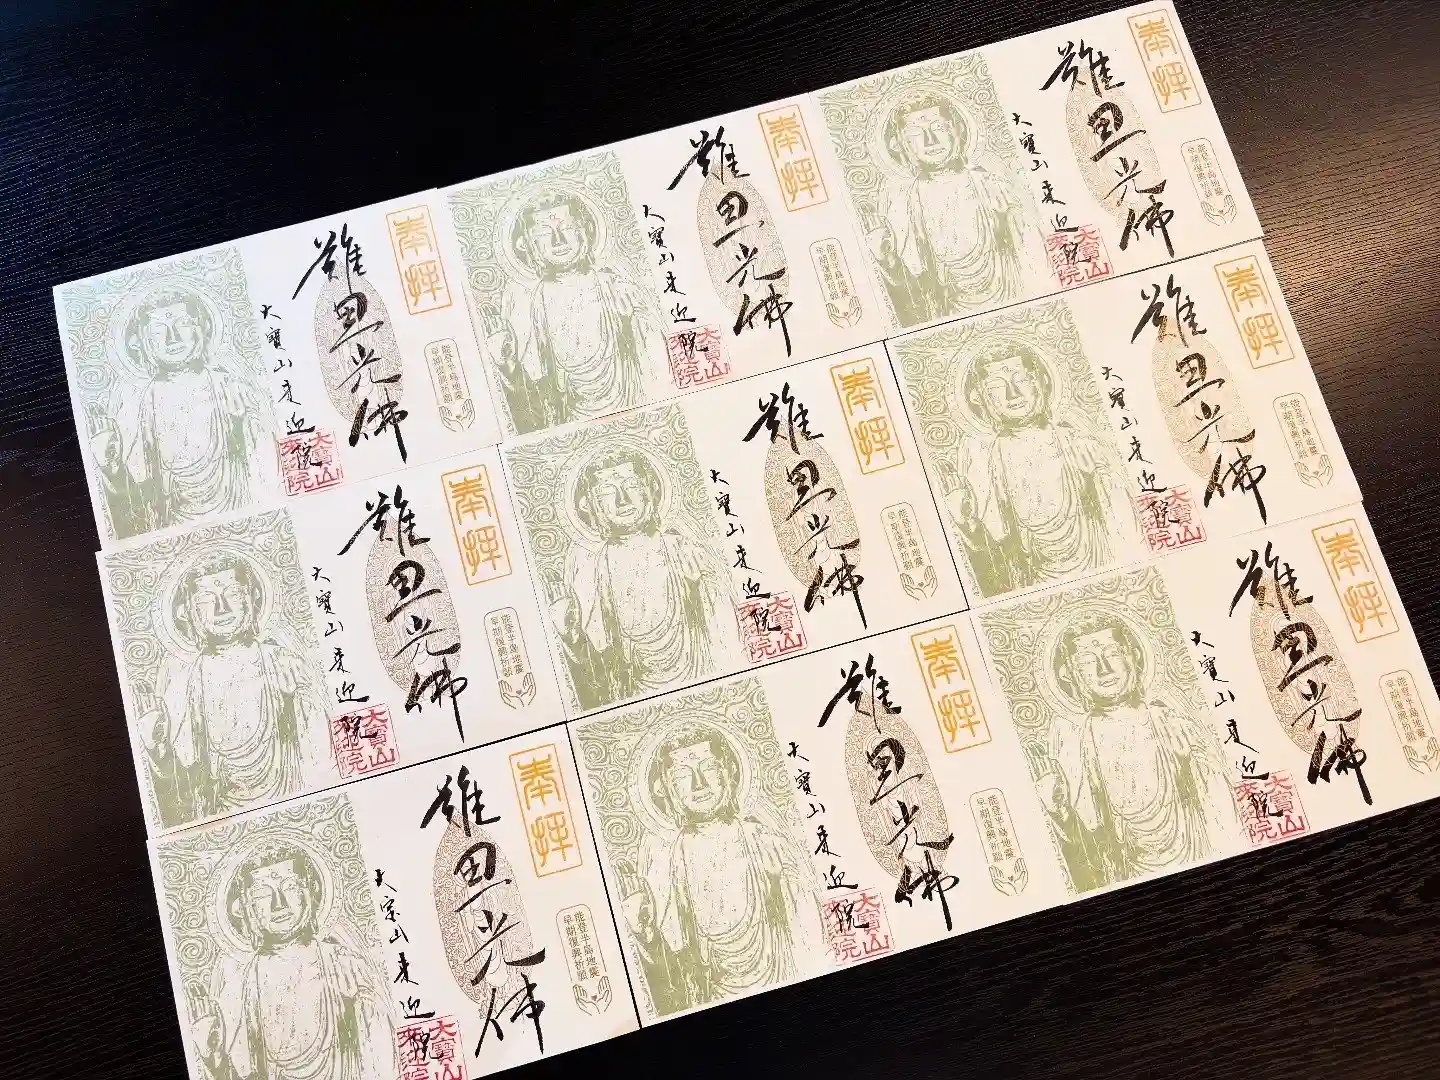 奉拝
能登半島地震
早期復興祈願
難思光佛
大寶山来迎院
大寶山
來迎院
奉拝
能登半島地震
早期復興祈願
難思光佛
大寶山来迎院
大寶山
來迎院
奉拝
能登半島地震
早期復興祈願
難思光佛
大寶山来迎院
大寶山
來迎院
奉拝
能登半島地震
早期復興祈願
難思光佛
大寶山来迎院
大寶山
來迎院
奉拝
能登半島地震
早期復興祈願
難思光佛
大寶山来迎院
大寶山
來迎院
奉拝
能登半島地震
早期復興祈願
難思光佛
大寶山来迎院
大寶山
來迎院
奉拝
能登半島地震
早期復興祈願
難思光佛
大寶山来迎院
大寶山
來迎院
奉拝
能登半島地震
早期復興祈願
難思光佛
大寶山来迎院
大寶山
來迎院
奉拝
能登半島地震
早期復興祈願
難思光佛
大寶山来迎院
大寶山
來迎院